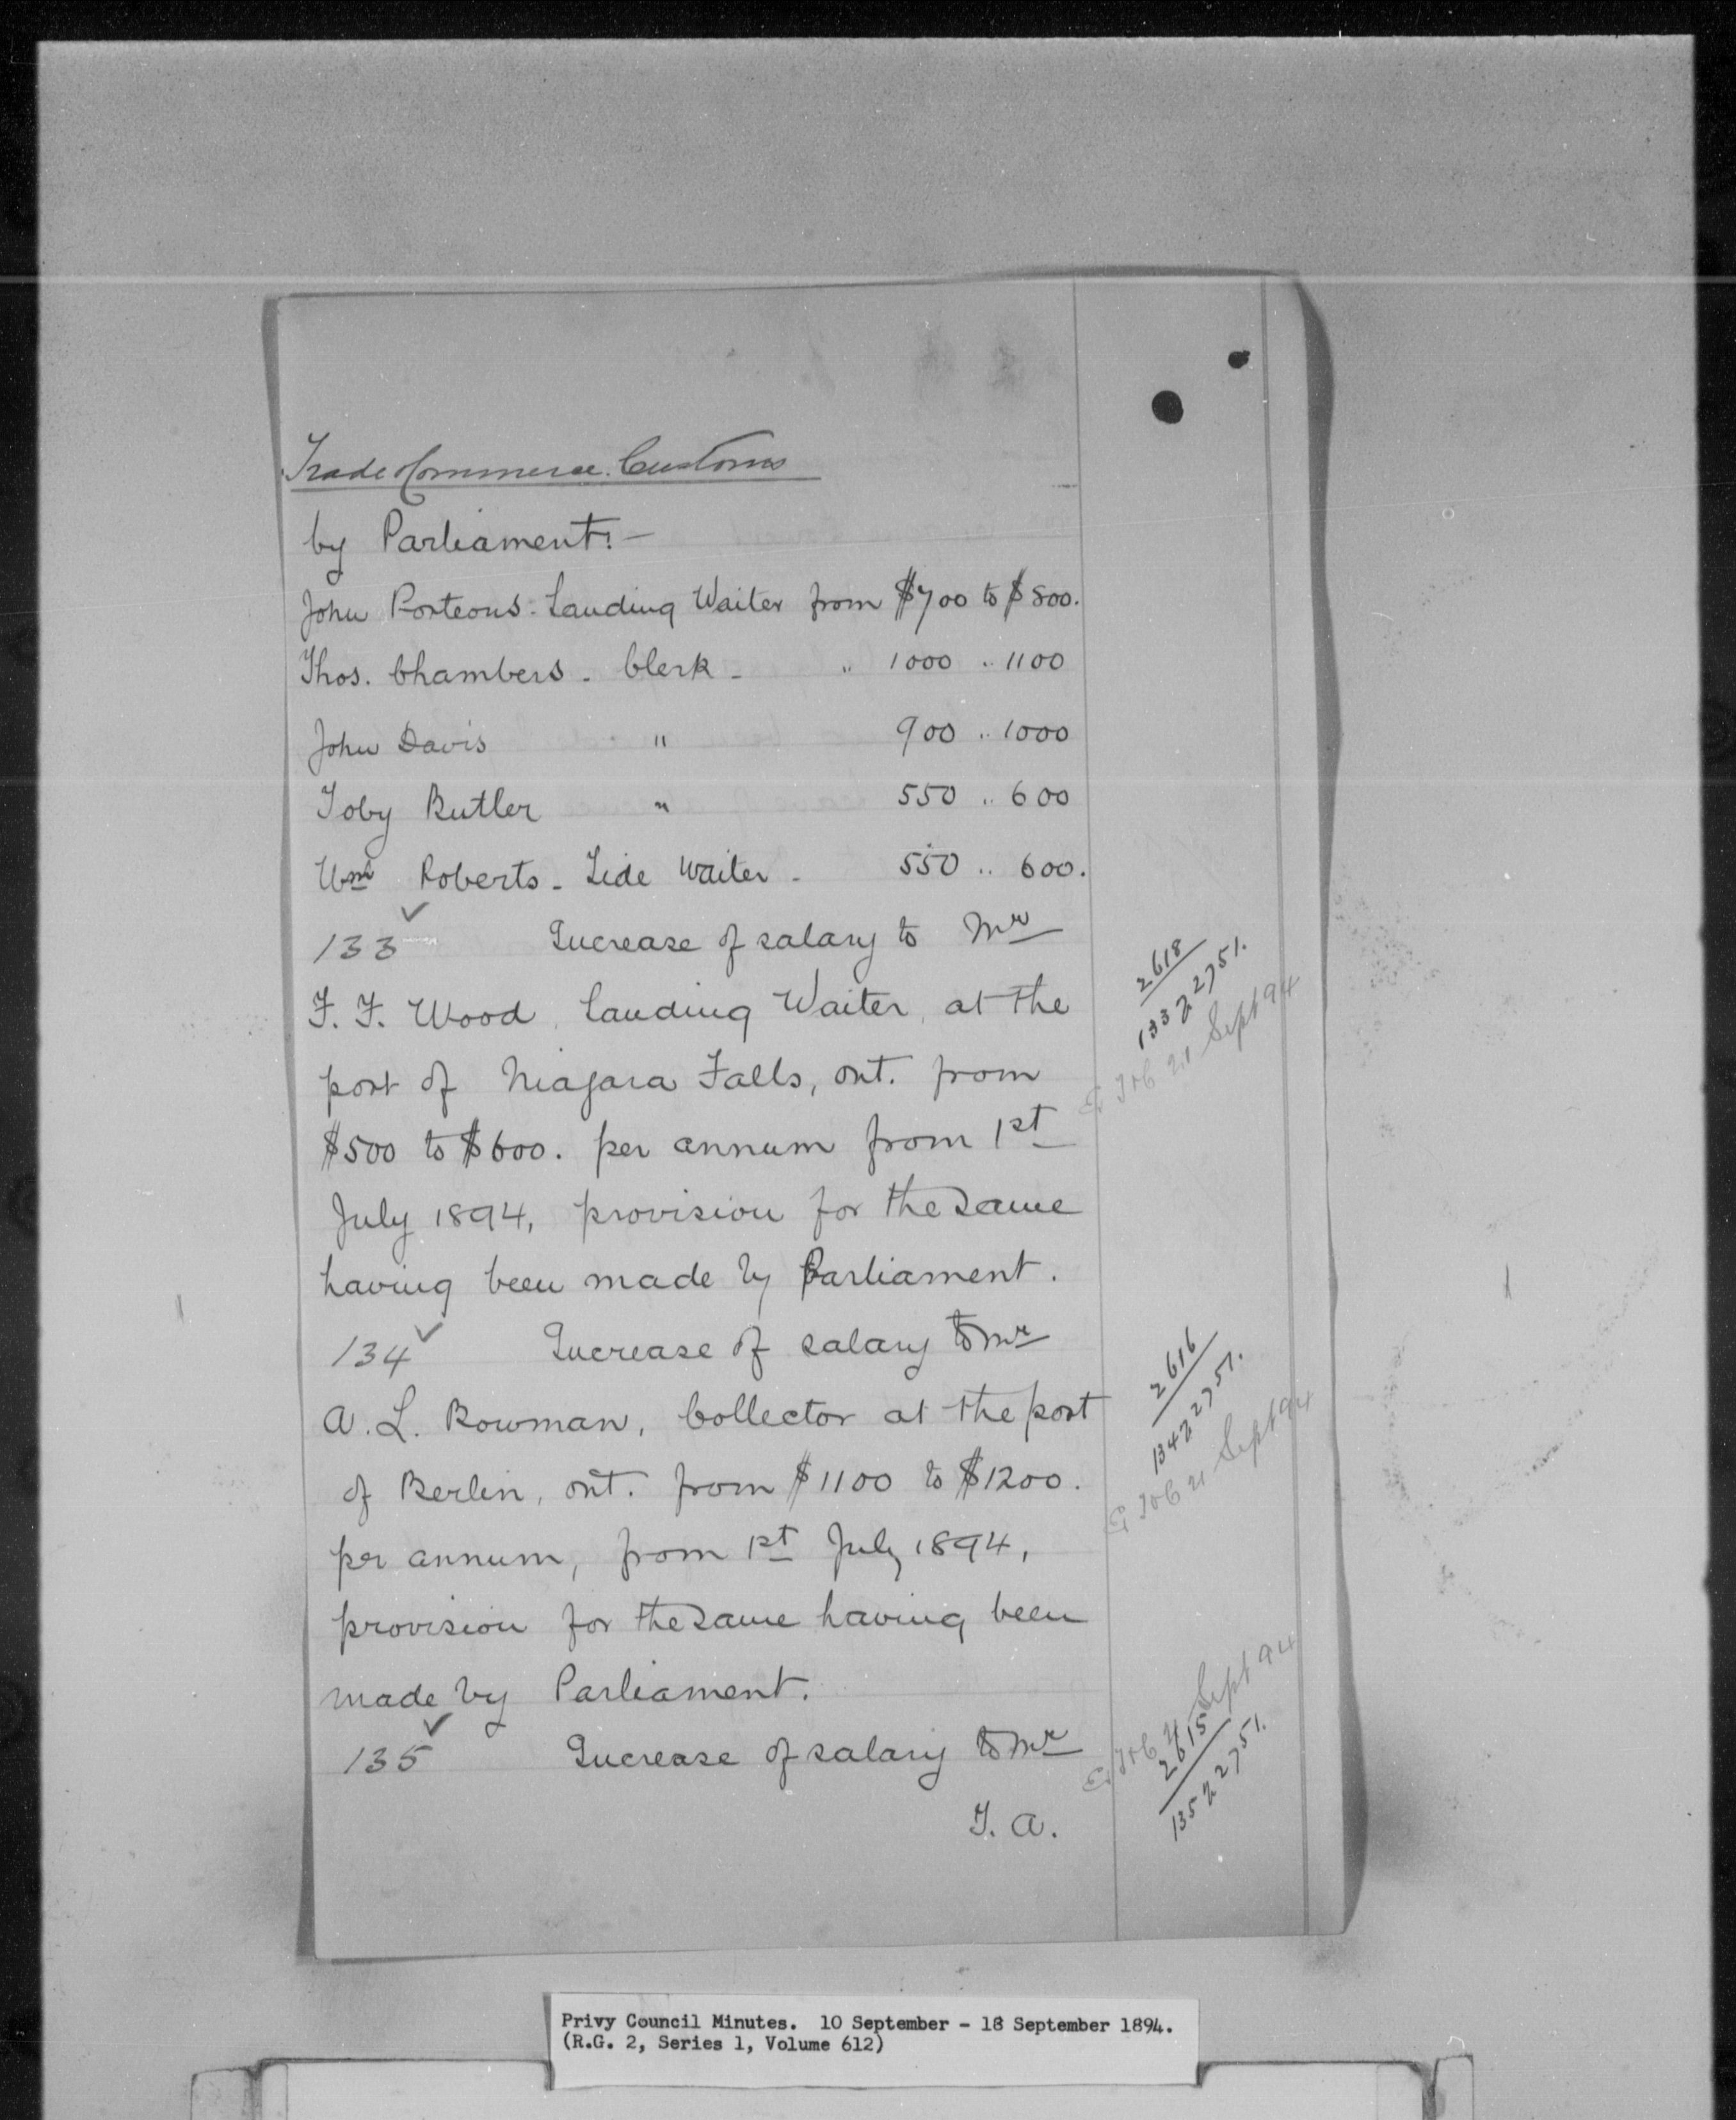 Trade & Commerce. Customs
by Parliament:—
John Porteous. Landing Waiter from $700 to $800.
Thos. Chambers. Clerk - " 1000 .. 1100
John Davis " 900 .. 1000
Toby Butler " 550 .. 600
Wm Roberts - Tide Waiter - 550 .. 600.
133 ✓ Increase of salary to Mr
F. F. Wood, Landing Waiter, at the
port of Niagara Falls, Ont. from
$500 to $600. per annum from 1st
July 1894, provision for the same
having been made by Parliament.
134 ✓ Increase of salary to Mr
A. L. Bowman, Collector at the port
of Berlin, Ont. from $1100 to $1200.
per annum, from 1st July 1894,
provision for the same having been
made by Parliament.
135 ✓ Increase of salary to Mr
T. A.
2618
133 2751.
21 Sept 94
2616
134 2751.
21 Sept 94
21 Sept 94
2615
135 2751.
Privy Council Minutes. 10 September - 18 September 1894.
(R.G. 2, Series 1, Volume 612)